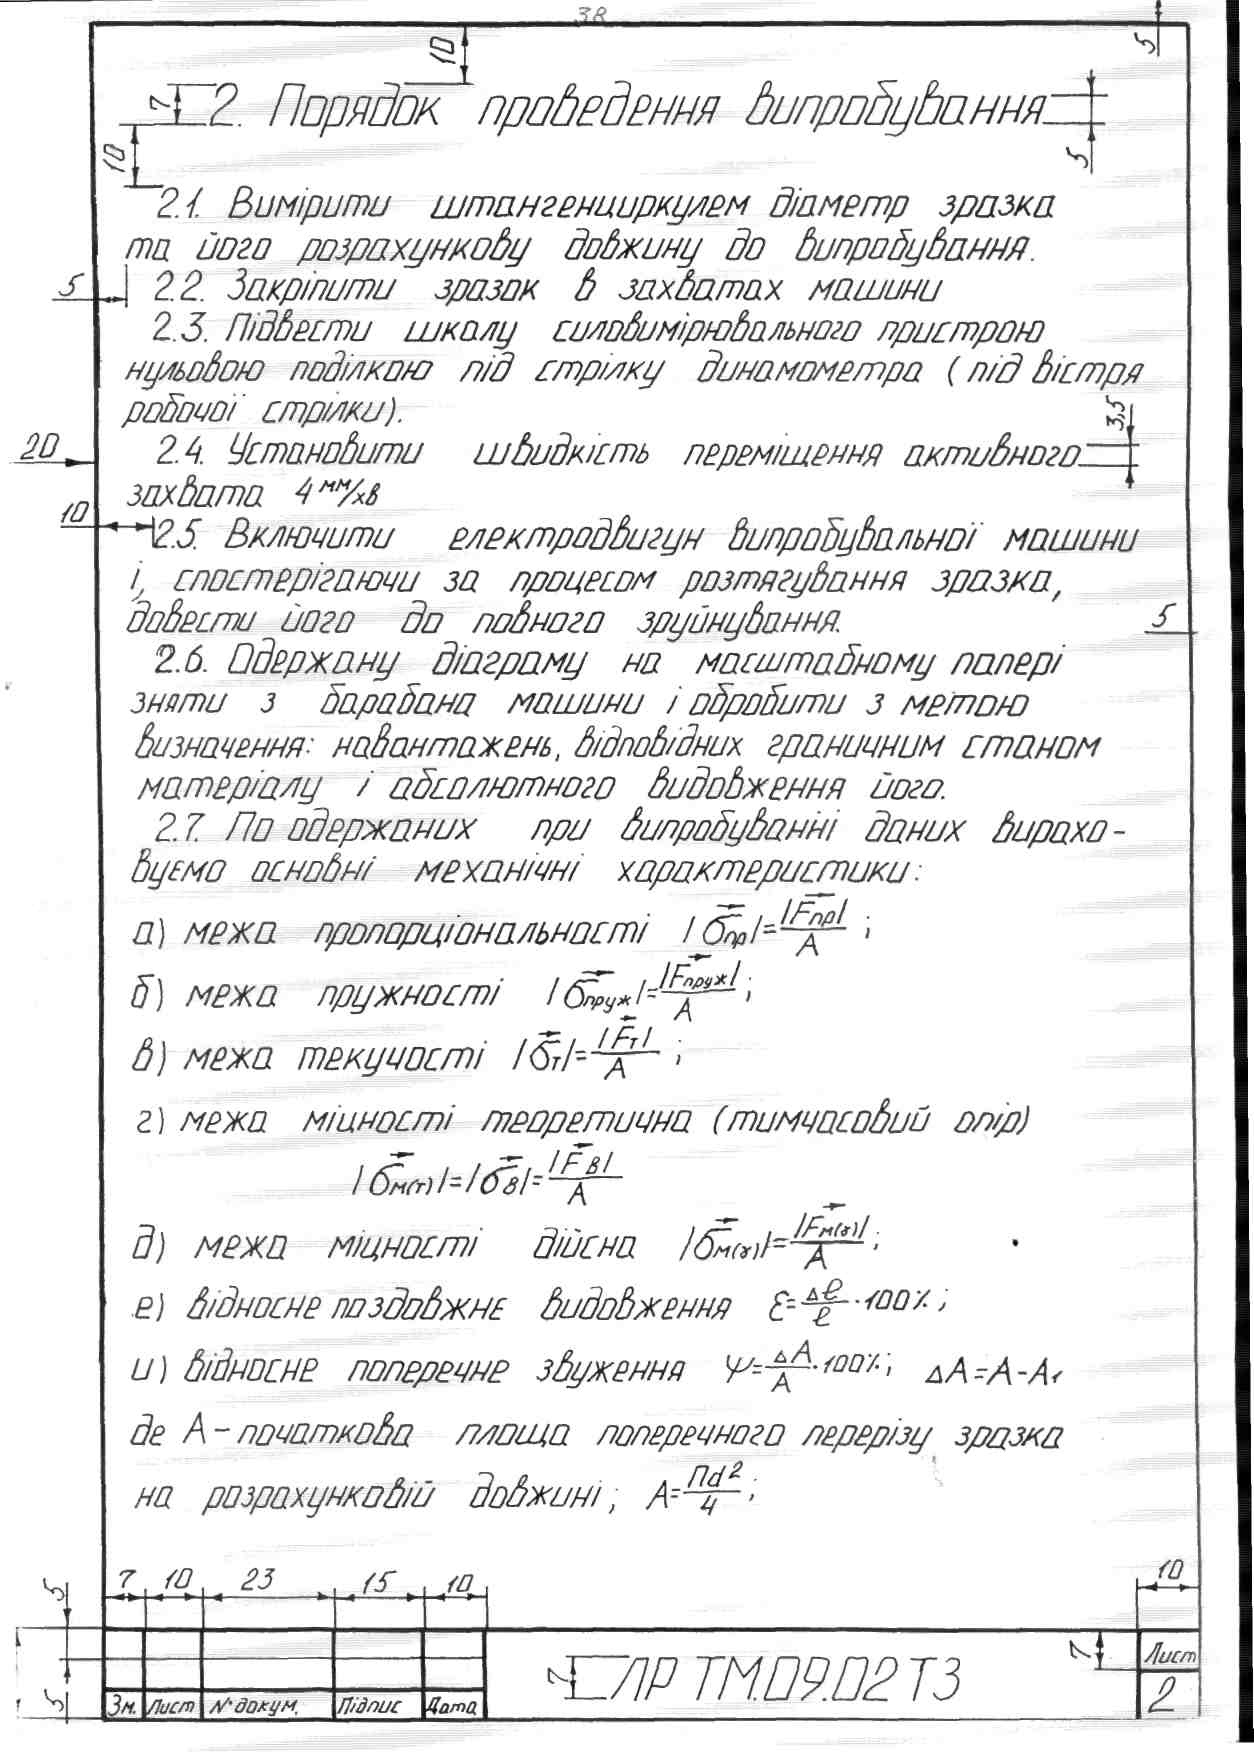 38
10
5
7 2. Порядок проведення випробування
10
5
2.1. Виміряти штангенциркулем діаметр зразка
та його розрахункову довжину до випробування.
5 2.2. Закріпити зразок в захватах машини
2.3. Підвести шкалу силовимірювального пристрою
нульовою поділкою під стрілку динамометра (під вістря
робочої стрілки).
3,5
20 2.4. Установити швидкість переміщення активного
захвата 4 мм/хв
10 2.5. Включити електродвигун випробувальної машини
і, спостерігаючи за процесом розтягування зразка,
довести його до повного зруйнування.
5
2.6. Одержану діаграму на масштабному папері
зняти з барабана машини і обробити з метою
визначення: навантажень, відповідних граничним станом
матеріалу і абсолютного видовження його.
2.7. По одержаних при випробуванні даних вирахо-
вуємо основні механічні характеристики:
а) межа пропорціональності |σ⃗пр|=|F⃗пр|/A ;
б) межа пружності |σ⃗пруж|=|F⃗пруж|/A ;
в) межа текучості |σ⃗т|=|F⃗т|/A ;
г) межа міцності теоретична (тимчасовий опір)
|σ⃗м(т)|=|σ⃗в|=|F⃗в|/A
д) межа міцності дійсна |σ⃗м(д)|=|F⃗м(д)|/A ;
е) відносне поздовжнє видовження Ɛ=Δℓ/ℓ·100%;
и) відносне поперечне звуження Ψ=ΔA/A·100%; ΔA=A-A₁
де A-початкова площа поперечного перерізу зразка
на розрахунковій довжині; A=Пd²/4 ;
5 7 10 23 15 10 10
7 ЛР ТМ.09.02 ТЗ 7 Лист
5 Зм. Лист № докум. Підпис Дата 2